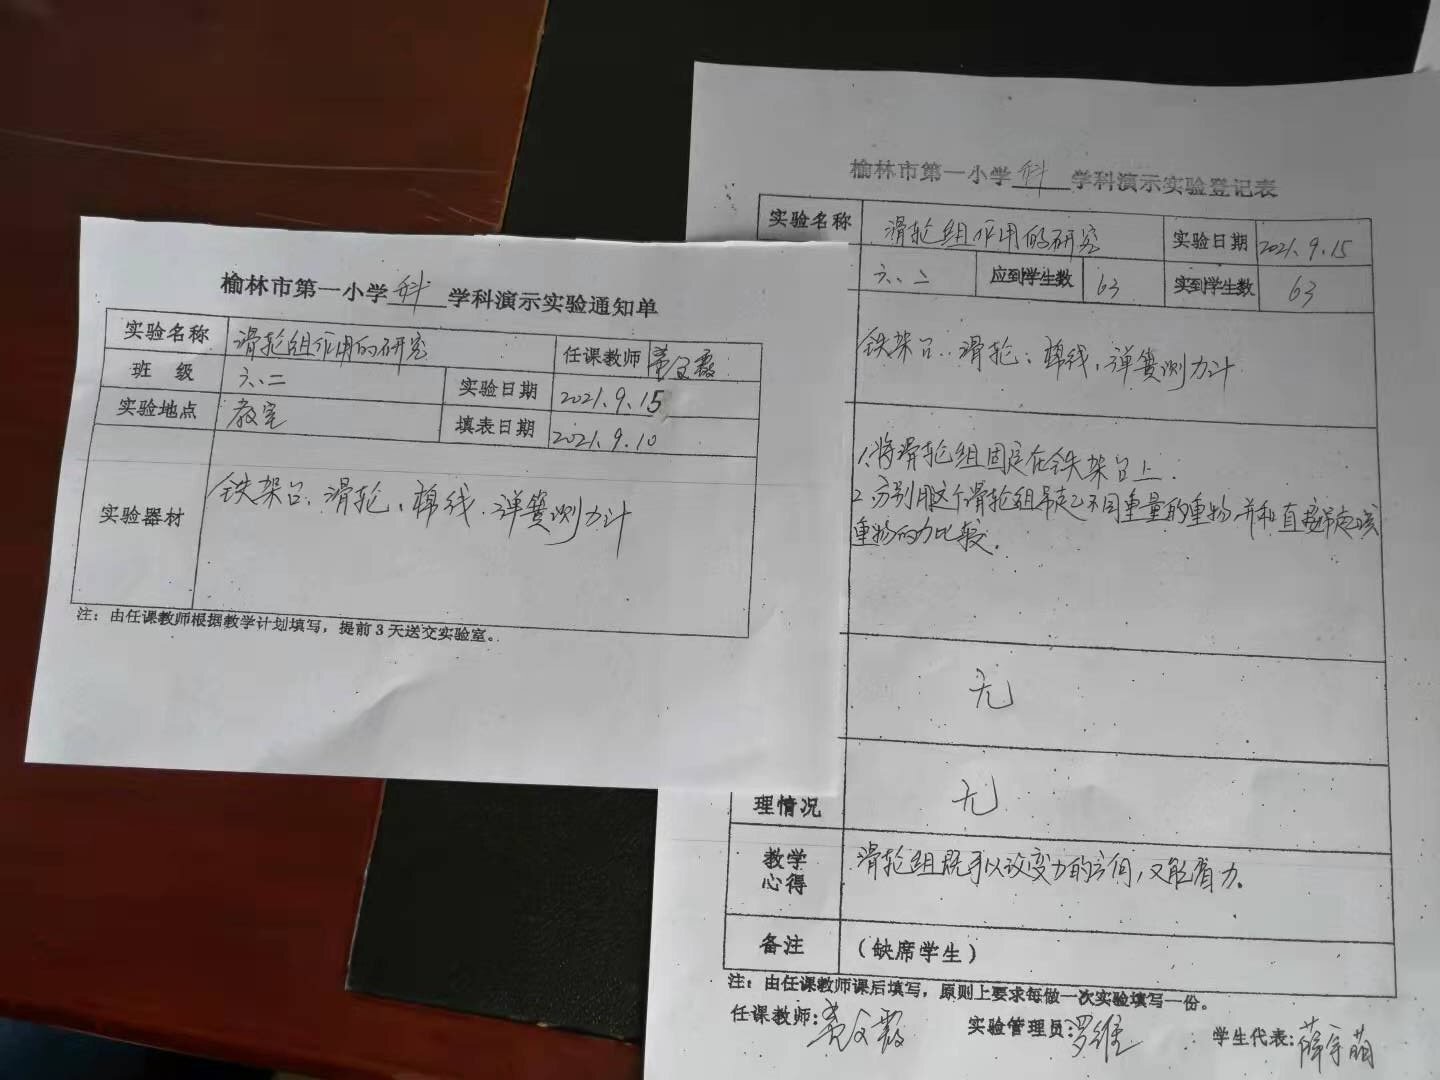 榆林市第一小学 科 学科演示实验通知单
实验名称 滑轮组作用的研究 任课教师
班 级 六、二 实验日期 2021.9.15
实验地点 教室 填表日期 2021.9.10
实验器材 铁架台、滑轮、棉线、弹簧测力计
注：由任课教师根据教学计划填写，提前3天送交实验室。
榆林市第一小学 科 学科演示实验登记表
实验名称 滑轮组作用的研究 实验日期 2021.9.15
六、二 应到学生数 63 实到学生数 63
铁架台、滑轮、棉线、弹簧测力计
1、将滑轮组固定在铁架台上.
2、分别用这个滑轮组吊起不同重量的重物,并和直接吊起该
重物的力比较.
无
理情况 无
教学
心得 滑轮组既可以改变力的方向,又能省力.
备注 （缺席学生）
注：由任课教师课后填写，原则上要求每做一次实验填写一份。
任课教师: 实验管理员:罗维 学生代表:薛宇萌